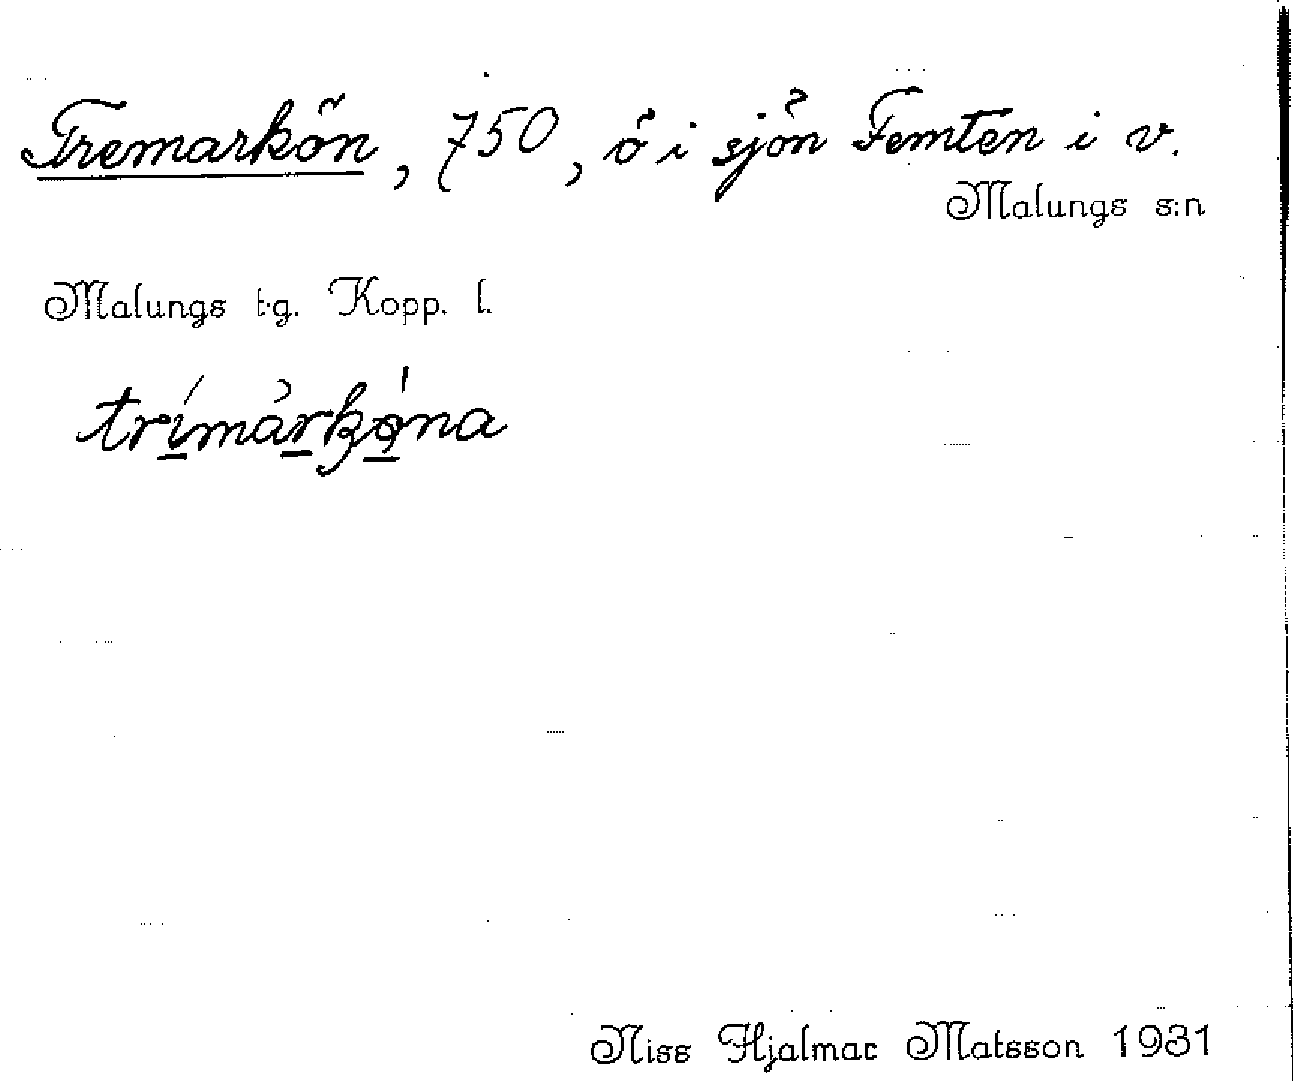 Tremarkön, 750, ö i sjön Femten i v.
Malungs s:n
Malungs t.g. Kopp. l.
trímàrkǫ́na
Niss Hjalmar Matsson 1931